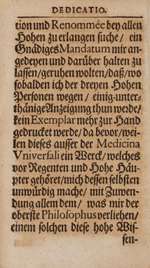 DEDICATIO.
tion und Renommée bey allen
Hohen zu erlangen suche/ ein
Gnädiges Mandatum mir an-
gedeyen und darüber halten zu
lassen/ geruhen wolten/ daß/wo
fobalden ich der dreyen Hohen
Personen wegen / einig-unter-
thänige Anzeigung thun werde/
kein Exemplar mehr zur Hand
gedrucket werde/ da bevor/ wei-
len dieses ausser der Medicina
Vniversali ein Werck/ welches
vor Regenten und Hohe Häu-
pter gehöret/ mich dessen selbsten
unwürdig mache/ mit Zuwen-
dung allem dem/ was mir der
oberste Philosophus verliehen/
einem solchen diese hohe Wis-
sen-